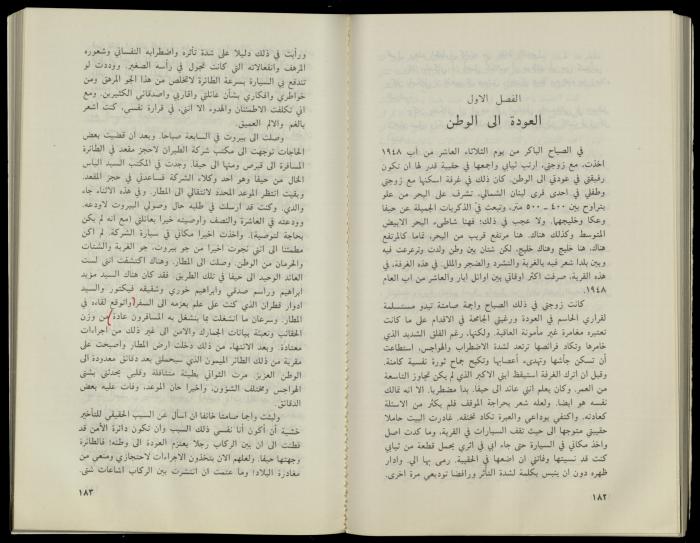 الفصل الاول
العودة الى الوطن
في الصباح الباكر من يوم الثلاثاء العاشر من آب ١٩٤٨
اخذت، مع زوجتي، ارتب ثيابي واجمعها في حقيبة قدر لها ان تكون
رفيقتي في عودتي الى الوطن. كان ذلك في غرفة اسكنها مع زوجتي
وطفلي في احدى قرى لبنان الشمالي، تشرف على البحر من علو
يتراوح بين ٤٠٠ ـ ٥٠٠ متر، وتبعث في الذكريات الجميلة عن حيفا
وعكا وخليجهما. ولا عجب في ذلك؛ فهنا شاطىء البحر الابيض
المتوسط وكذلك هناك. هنا مرتفع قريب من البحر، تماما كالمرتفع
هناك، هنا خليج وهناك خليج. لكن شتان بين وطن ولدت وترعرعت فيه
وبين بلدا شعر فيه بالغربة والتشرد والضجر والملل. في هذه الغرفة، في
هذه القرية، صرفت اكثر اوقاتي بين اوائل ايار والعاشر من آب العام
١٩٤٨.
كانت زوجتي في ذلك الصباح واجمة صامتة تبدو مستسلمة
لقراري الحاسم في العودة ورغبتي الجامحة في الاقدام على ما كانت
تعتبره مغامرة غير مأمونة العاقبة. ولكنها، رغم القلق الشديد الذي
خامرها وتكاد فرائصها ترتعد لشدة الاضطراب والهواجس، استطاعت
ان تسكن جأشها وتهدىء اعصابها وتكبح جماح ثورة نفسية كامنة.
وقبل ان اترك الغرفة استيقظ ابني الاكبر الذي لم يكن تجاوز التاسعة
من العمر. وكان يعلم انني عائد الى حيفا. بدا مضطربا. الا انه تمالك
نفسه هو ايضا. ولعله شعر بحراجة الموقف فلم يكثر من الاسئلة
كعادته. واكتفى بوداعي والعبرة تكاد تخنقه. غادرت البيت حاملا
حقيبتي متوجها الى حيث تقف السيارات في القرية. وما كدت اصل
واخذ مكاني في السيارة حتى جاء ابني في اثري يحمل قطعة من ثيابي
كنت قد نسيتها وفاتني ان اضعها في الحقيبة. رمى بها الي. وادار
ظهره دون ان ينبس بكلمة لشدة التأثر ورافضا توديعي مرة اخرى.
١٨٢
ورأيت في ذلك دليلا على شدة تأثره واضطرابه النفساني وشعوره
المرهف وانفعالاته التي كانت تجول في رأسه الصغير. ووددت لو
تندفع بي السيارة بسرعة الطائرة لاتخلص من هذا الجو المرهق ومن
خواطري وافكاري بشأن عائلتي واقاربي واصدقائي الكثيرين. ومع
اني تكلفت الاطمئنان والهدوء الا انني، في قرارة نفسي، كنت اشعر
بالغم والالم العميق.
وصلت الى بيروت في السابعة صباحا. وبعد ان قضيت بعض
الحاجات توجهت الى مكتب شركة الطيران لاحجز مقعد في الطائرة
المسافرة الى قبرص ومنها الى حيفا. وجدت في المكتب السيد الياس
الخال من حيفا وهو احد وكلاء الشركة فساعدني في حجز المقعد.
وبقيت انتظر الموعد المحدد لانتقالي الى المطار. وفي هذه الاثناء جاء
والدي. وكنت قد ارسلت في طلبه حال وصولي البيروت لاودعه.
وودعته في العاشرة والنصف واوصيته خيرا بعائلتي (مع انه لم يكن
بحاجة لتوصية). واخذت اخيرا مكاني في سيارة الشركة. لم اكن
مطمئنا الى انني نجوت اخيرا من جو بيروت، جو الغربة والشتات
والحرمان من الوطن. وصلت الى المطار. وهناك اكتشفت انني لست
العائد الوحيد الى حيفا في تلك الطريق. فقد كان هناك السيد مؤيد
ابراهيم وراسم صدقي وابراهيم خوري وشقيقه فيكتور والسيد
ادوار قطران الذي كنت على علم بعزمه الى السفر واتوقع لقاءه في
المطار. وسرعان ما انشغلت بما ينشغل به المسافرون عادة من وزن
الحقائب وتعبئة بيانات الجمارك والامن الى غير ذلك من اجراءات
معتادة. وبعد الانتهاء، من ذلك دخلت ارض المطار واصبحت على
مقربة من ذلك الطائر الميمون الذي سيحملني بعد دقائق معدودة الى
الوطن العزيز. مرت الثواني بطيئة متثاقلة وقلبي يحدثني بشتى
الهواجس ومختلف الشؤون. واخيرا حان الموعد. وفات عليه بعض
الدقائق.
ولبثت واجما صامتا خائفا ان اسأل عن السبب الحقيقي للتأخير
خشية ان أكون أنا نفسي ذلك السبب وان تكون دائرة الأمن قد
فطنت الى ان بين الركاب رجلا يعتزم العودة الى وطنه؛ فالطائرة
وجهتها حيفا. ولعلهم الآن يتخذون الاجراءات لاحتجازي ومنعي من
مغادرة البلاد! وما عتمت ان انتشرت بين الركاب اشاعات شتى.
١٨٣